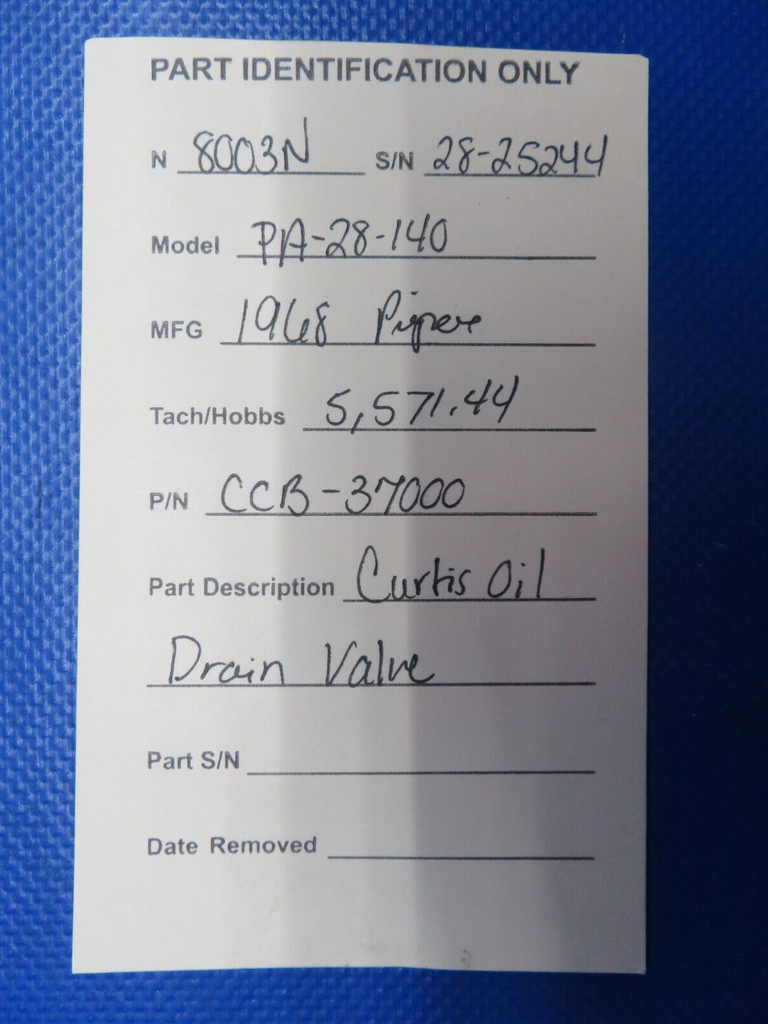 PART IDENTIFICATION ONLY
N 8003N S/N 28-25244
Model PA-28-140
MFG 1968 Piper
Tach/Hobbs 5,571.44
P/N CCB-37000
Part Description Curtis Oil
Drain Valve
Part S/N
Date Removed